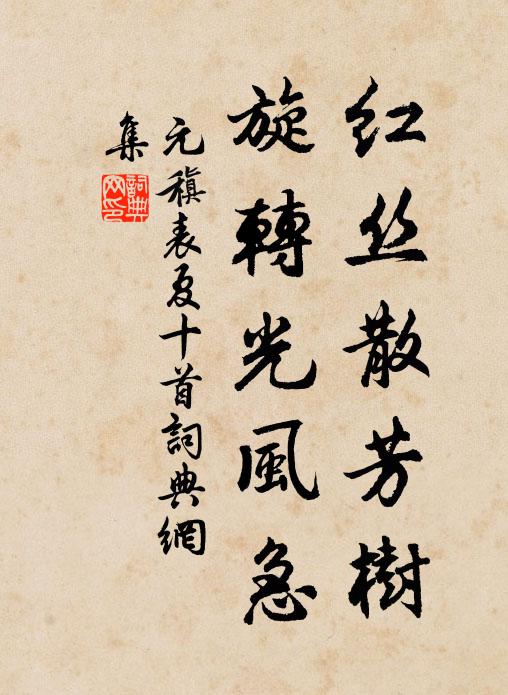 红丝散芳樹
旋轉光風急
元稹表夏十首詞典網
集
詞典
网印